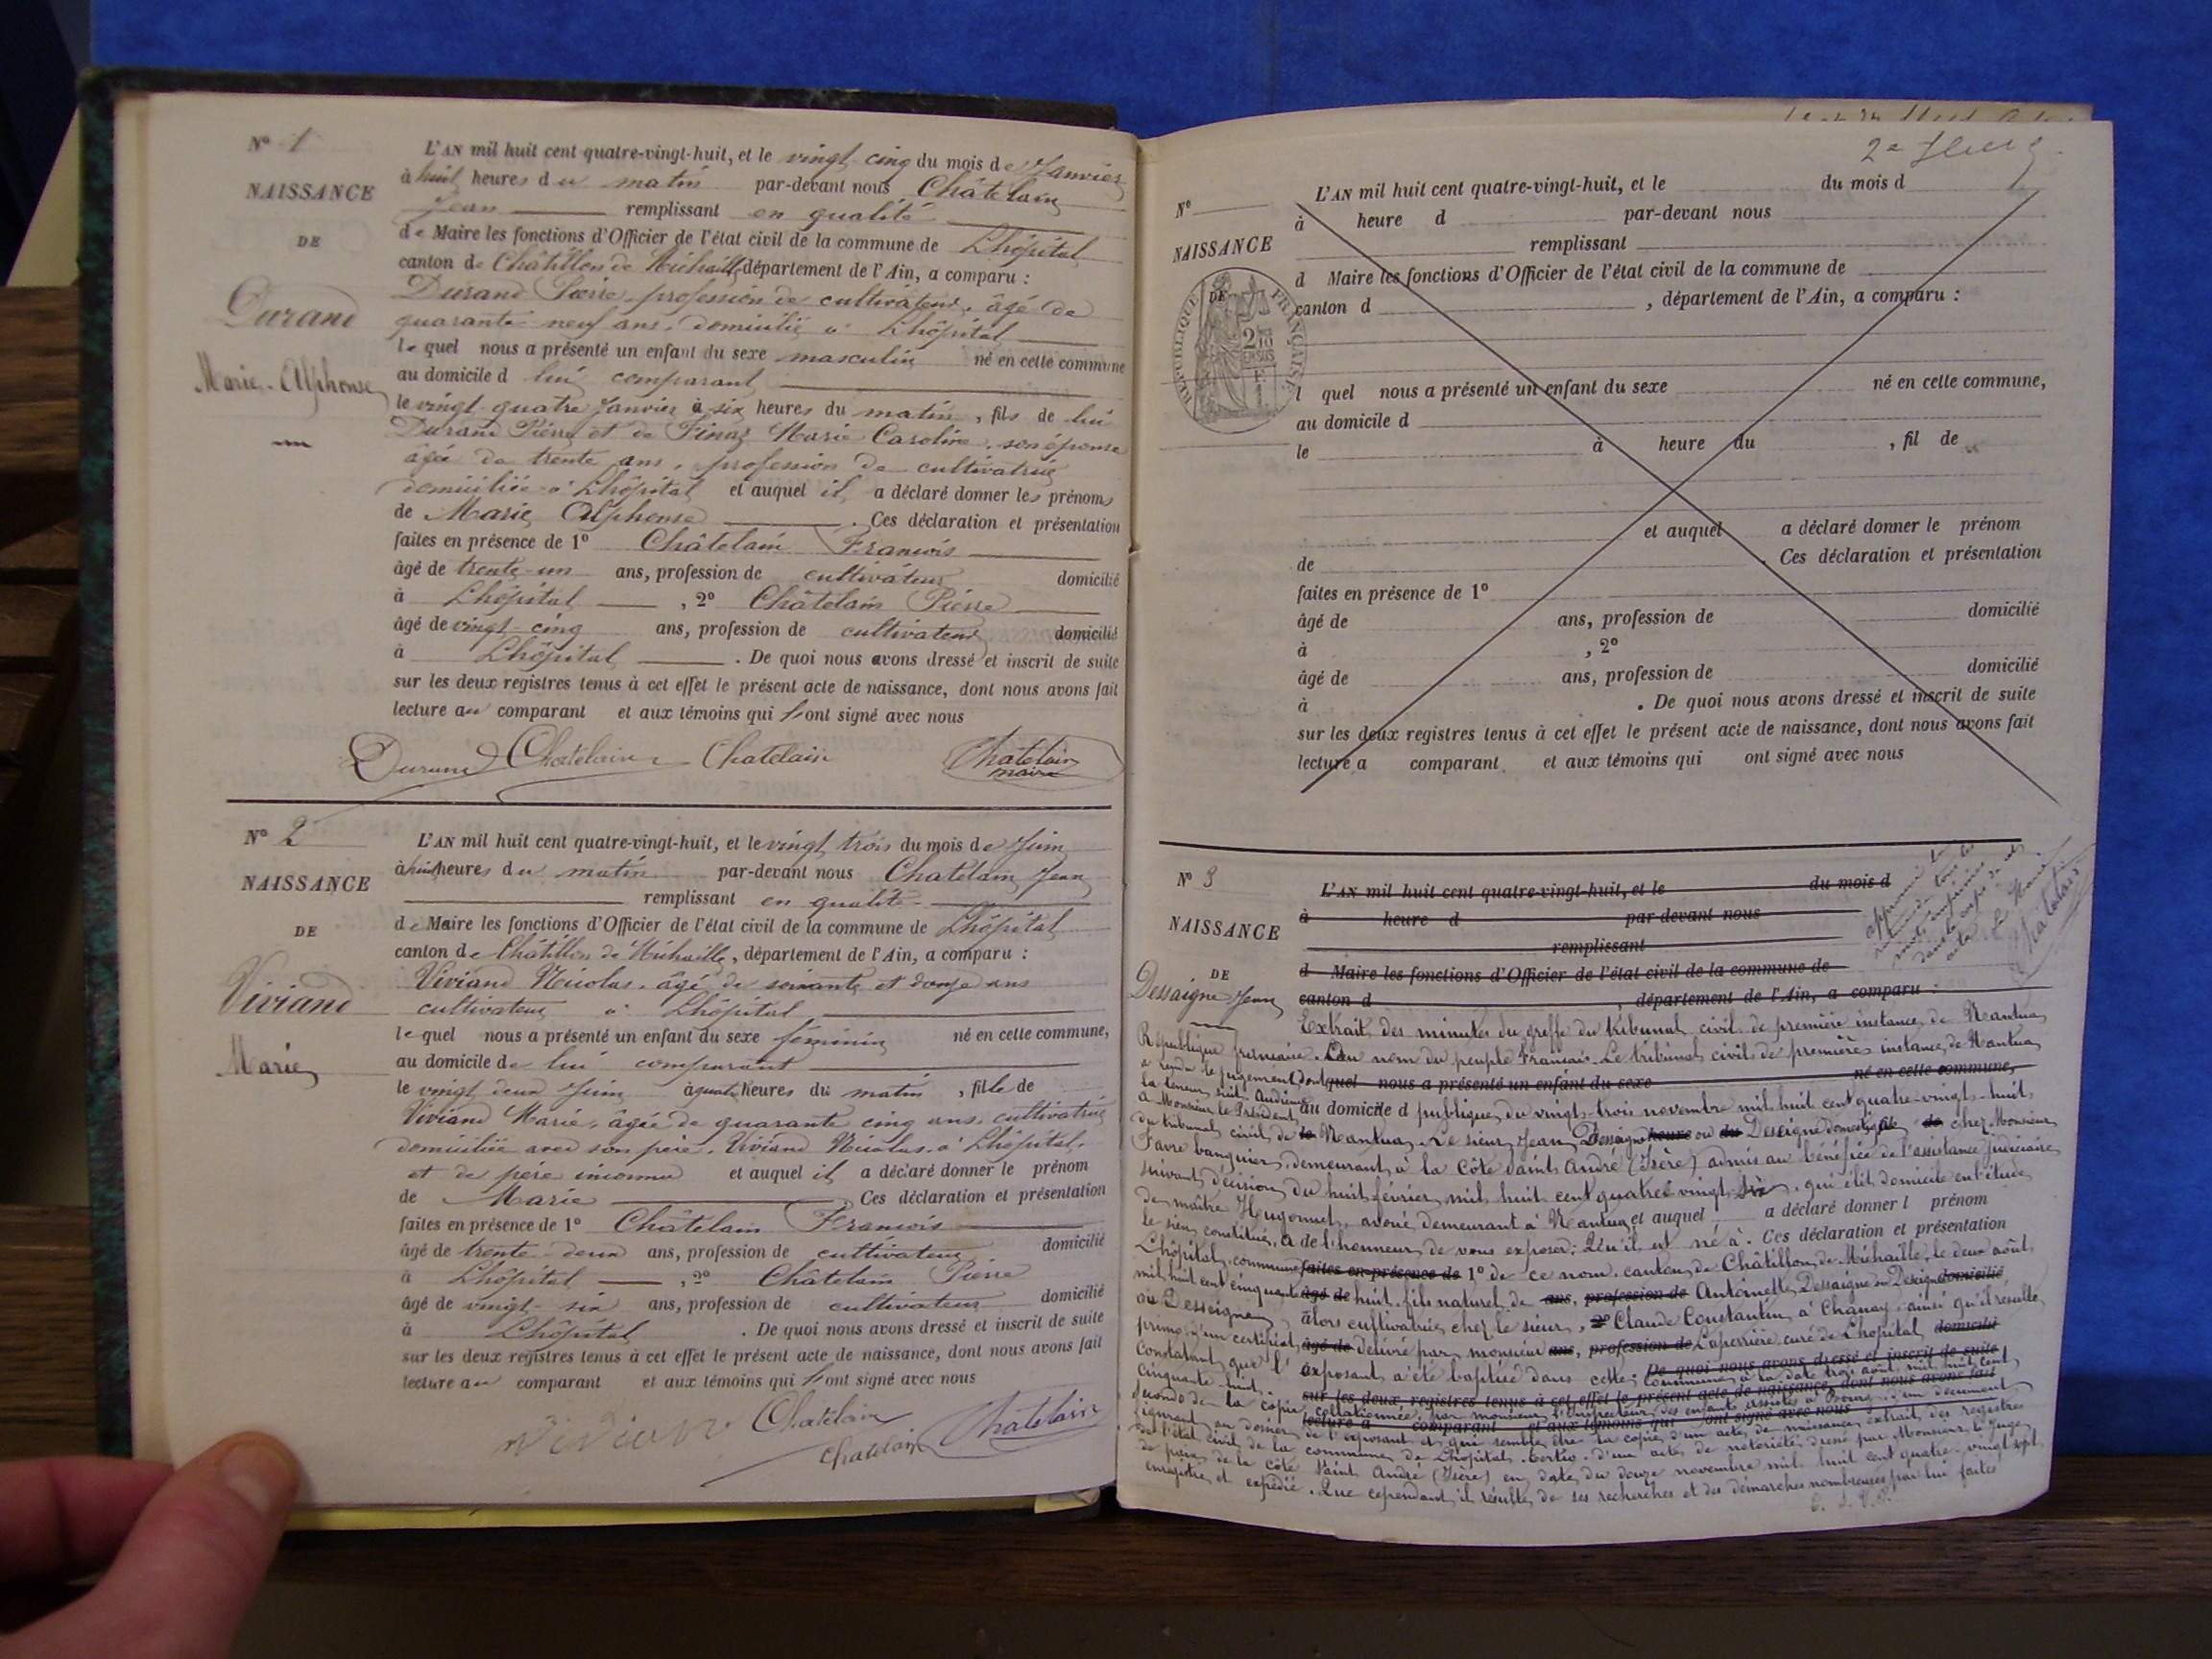 N° 1
NAISSANCE
DE
Durand
Marie-Alphonse
L'AN mil huit cent quatre-vingt-huit, et le vingt cinq du mois de Janvier
à huit heures du matin par-devant nous Châtelain
Jean remplissant en qualité
de Maire les fonctions d'Officier de l'état civil de la commune de Lhôpital
canton de Châtillon de Michaille, département de l'Ain, a comparu :
Durand Pierre, profession de cultivateur, âgé de
quarante neuf ans, domicilié à Lhôpital
lequel nous a présenté un enfant du sexe masculin né en cette commune
au domicile d lui comparant
le vingt quatre Janvier à six heures du matin, fils de lui
Durand Pierre et de Finaz Marie Caroline, son épouse
âgée de trente ans, profession de cultivatrice
domiciliée à Lhôpital et auquel il a déclaré donner les prénoms
de Marie Alphonse . Ces déclaration et présentation
faites en présence de 1° Châtelain François
âgé de trente-un ans, profession de cultivateur domicilié
à Lhôpital , 2° Châtelain Pierre
âgé de vingt-cinq ans, profession de cultivateur domicilié
à Lhôpital . De quoi nous avons dressé et inscrit de suite
sur les deux registres tenus à cet effet le présent acte de naissance, dont nous avons fait
lecture au comparant et aux témoins qui l'ont signé avec nous
Durand Chatelain Chatelain Chatelain
maire
N° 2
NAISSANCE
DE
Viviand
Marie
L'AN mil huit cent quatre-vingt-huit, et le vingt trois du mois de Juin
à huit heures du matin par-devant nous Chatelain Jean
remplissant en qualité
de Maire les fonctions d'Officier de l'état civil de la commune de Lhôpital
canton de Châtillon de Michaille, département de l'Ain, a comparu :
Viviand Nicolas, âgé de soixante et douze ans
cultivateur à Lhôpital
lequel nous a présenté un enfant du sexe féminin né en cette commune,
au domicile de lui comparant
le vingt deux Juin à quatre heures du matin, fille de
Viviand Marie, âgée de quarante cinq ans, cultivatrice
domiciliée avec son père, Viviand Nicolas, à Lhôpital,
et de père inconnu et auquel il a déclaré donner le prénom
de Marie . Ces déclaration et présentation
faites en présence de 1° Châtelain François
âgé de trente-deux ans, profession de cultivateur domicilié
à Lhôpital , 2° Châtelain Pierre
âgé de vingt-six ans, profession de cultivateur domicilié
à Lhôpital . De quoi nous avons dressé et inscrit de suite
sur les deux registres tenus à cet effet le présent acte de naissance, dont nous avons fait
lecture au comparant et aux témoins qui l'ont signé avec nous
Viviand Chatelain Chatelain
Chatelain
N°
NAISSANCE
DE
RÉPUBLIQUE FRANÇAISE
L'AN mil huit cent quatre-vingt-huit, et le du mois d
à heure d par-devant nous
remplissant
d Maire les fonctions d'Officier de l'état civil de la commune de
canton d , département de l'Ain, a comparu :
l quel nous a présenté un enfant du sexe né en cette commune,
au domicile d
le à heure du , fil de
et auquel a déclaré donner le prénom
de . Ces déclaration et présentation
faites en présence de 1°
âgé de ans, profession de domicilié
à , 2°
âgé de ans, profession de domicilié
à . De quoi nous avons dressé et inscrit de suite
sur les deux registres tenus à cet effet le présent acte de naissance, dont nous avons fait
lecture a comparant et aux témoins qui ont signé avec nous
N° 3
NAISSANCE
DE
Dessaigne Jean
L'AN mil huit cent quatre-vingt-huit, et le du mois d
à heure d par-devant nous
remplissant
d Maire les fonctions d'Officier de l'état civil de la commune de
canton d , département de l'Ain, a comparu :
Le Maire
Chatelain
Extrait des minutes du greffe du tribunal civil de première instance de Nantua
République française. Au nom du peuple Français. Le tribunal civil de première instance de Nantua
a rendu le jugement dont quel nous a présenté un enfant du sexe né en cette commune,
la teneur suit. Audience au domicile d publique du vingt-trois novembre mil huit cent quatre-vingt-huit,
A Monsieur le Président
du tribunal civil de le Nantua. Le sieur Jean Dessaigne heure ou du Desseigne domestique de chez Monsieur
Favre banquier, demeurant à la Côte Saint André (Isère) admis au bénéfice de l'assistance judiciaire
suivant décision du huit février mil huit cent quatre vingt six, qui élit domicile en l'étude
de maître Hugonnet, avoué demeurant à Nantua et auquel a déclaré donner l prénom
le sien constitué, A de l'honneur de vous exposer: Qu'il est né à . Ces déclaration et présentation
Lhôpital, commune faites en présence de 1° de ce nom, canton de Châtillon de Michaille, le deux août
mil huit cent cinquante âgé de huit, fils naturel de ans, profession de Antoinette Dessaigne ou Deseigne domicilié
ou Desseigne, alors cultivatrice chez le sieur , 2° Claude Constantin à Chanay, ainsi qu'il résulte
primo, d'un certificat, âgé de délivré par monsieur ans, profession de Laperrière curé de Lhopital domicilié
constatant que l'exposant a été baptisé dans cette De quoi nous avons dressé et inscrit de suite
commune à la date trois août mil huit cent
cinquante huit. sur les deux registres tenus à cet effet le présent acte de naissance, dont nous avons fait
secondo de la copie collationnée par monsieur l'Inspecteur des enfants assistés à Bourg d'un document
lecture a comparant et aux témoins qui ont signé avec nous
figurant au dossier de l'exposant et qui semble être la copie d'un acte de naissance extrait des registres
de l'état civil de la commune de Lhôpital. tertio, d'un acte de notoriété dressé par Monsieur le Juge
de paix de la Côte Saint André (Isère) en date du douze novembre mil huit cent quatre-vingt sept
enregistré et expédié. Que cependant il résulte de ses recherches et des démarches nombreuses par lui faites